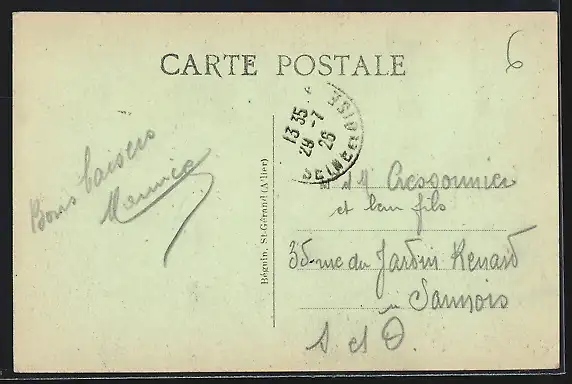 CARTE POSTALE
6
13 35
29 -7
26
SEINE ET OISE
Bons baisers
Maurice
Béguin, St-Gérand (A'lier)
M et Me Cressonnier
et leur fils
35 rue du Jardin Renard
à Sannois
S et O.